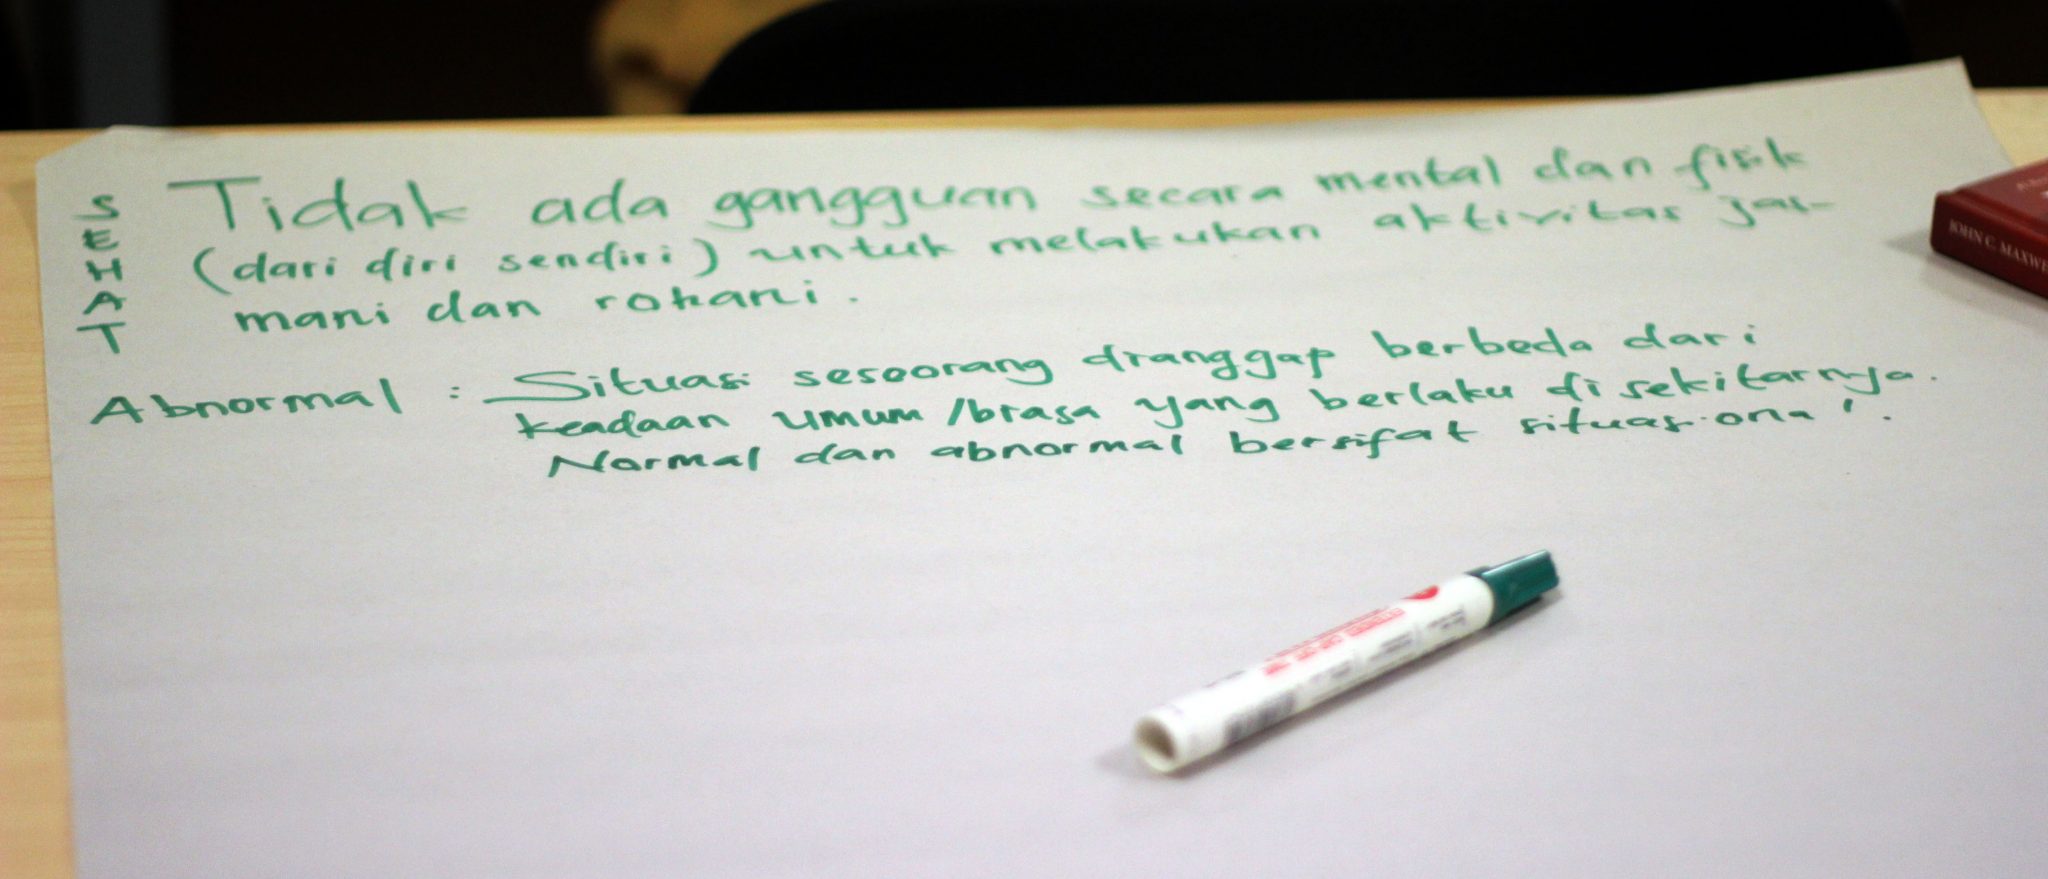 SEHAT
Tidak ada gangguan secara mental dan fisik
(dari diri sendiri) untuk melakukan aktivitas jas-
mani dan rohani.
Abnormal : Situasi seseorang dianggap berbeda dari
keadaan umum/biasa yang berlaku di sekitarnya.
Normal dan abnormal bersifat situasional.
JOHN C. MAXWE